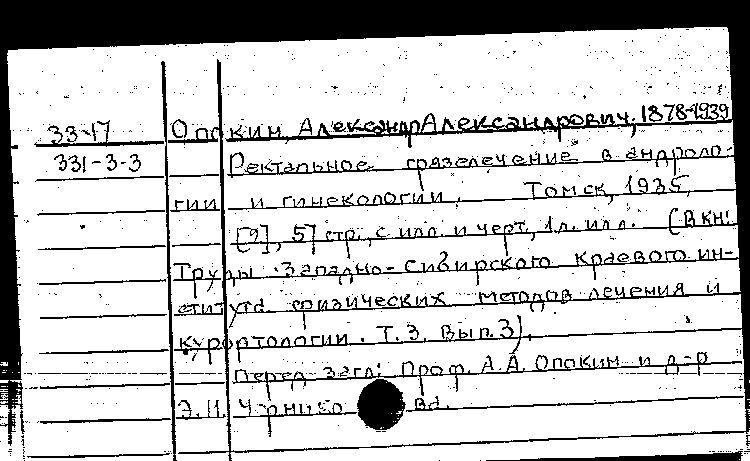 33-17 Опокин, Александр Александрович, 1878-1939
331-3-3 Ректальное грязелечение в андроло-
гии и гинекологии. Томск, 1935,
[2], 57 стр., с илл. и черт., 1 л. илл. (В кн:
Труды Западно-Сибирского краевого ин-
ститута физических методов лечения и
курортологии. Т. 3. Вып. 3).
Перед загл: Проф. А.А. Опокин и д-р